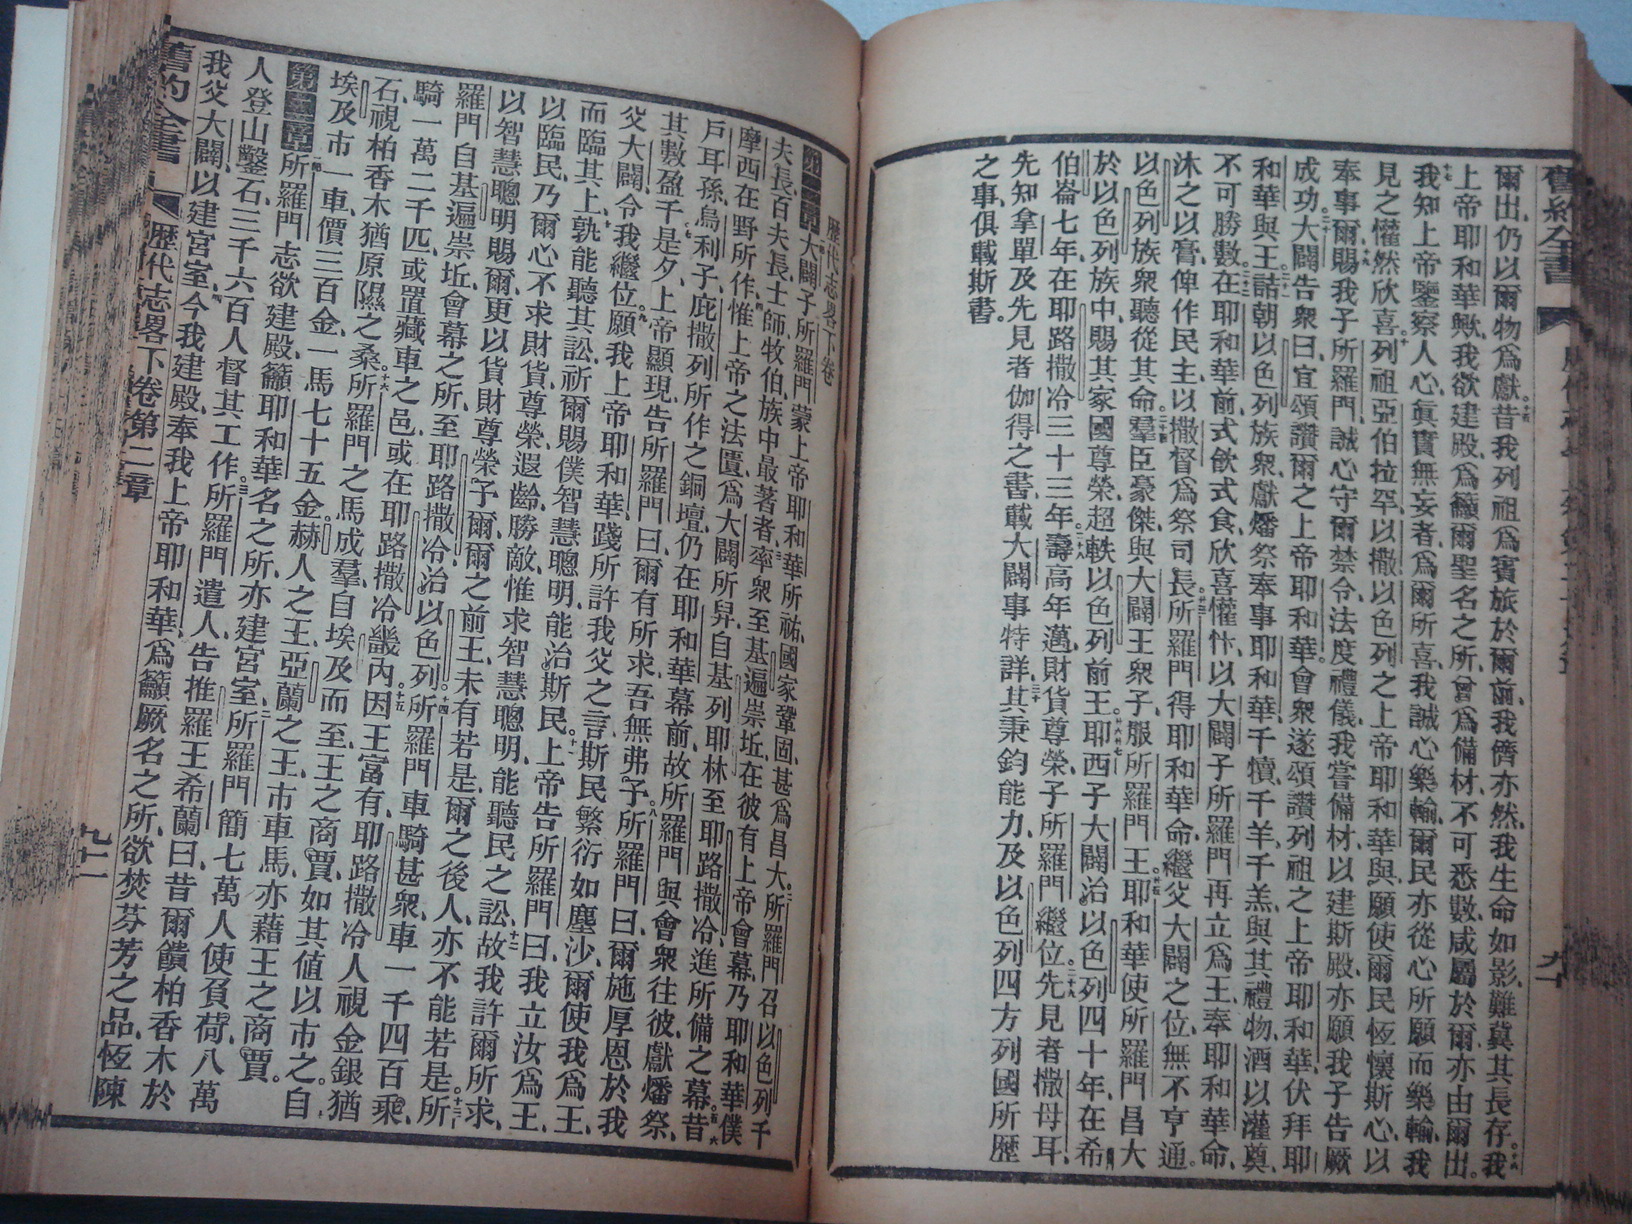 舊約全書
九十
爾出、仍以爾物爲獻、昔我列祖爲賓旅於爾前、我儕亦然、我生命如影、難冀其長存。我
上帝耶和華歟、我欲建殿、爲籲爾聖名之所、曾爲備材、不可悉數、咸屬於爾、亦由爾出。
我知上帝鑒察人心、眞實無妄者、爲爾所喜、我誠心樂輸、爾民亦從心所願而樂輸、我
見之懽然欣喜、列祖亞伯拉罕、以撒、以色列之上帝耶和華與、願使爾民恆懷斯心、以
奉事爾、賜我子所羅門、誠心守爾禁令法度禮儀、我嘗備材以建斯殿、亦願我子告厥
成功、大闢告衆曰、宜頌讚爾之上帝耶和華。會衆遂頌讚列祖之上帝耶和華、伏拜耶
和華與王。詰朝以色列族衆、獻燔祭奉事耶和華、千犢、千羊、千羔、與其禮物、酒以灌奠、
不可勝數、在耶和華前、式飲式食、欣喜懽忭、以大闢子所羅門再立爲王、奉耶和華命、
沐之以膏、俾作民主、以撒督爲祭司長、所羅門得耶和華命、繼父大闢之位、無不亨通。
以色列族衆聽從其命。羣臣豪傑、與大闢王衆子、服所羅門王、耶和華使所羅門昌大
於以色列族中、賜其家國尊榮、超軼以色列前王、耶西子大闢治以色列四十年、在希
伯崙七年、在耶路撒冷三十三年。壽高年邁、財貨尊榮、子所羅門繼位、先見者撒母耳、
先知拿單、及先見者伽得之書、載大闢事特詳、其秉鈞能力、及以色列四方列國所歷
之事、俱載斯書。
歷代志畧下卷
第一章 大闢子所羅門、蒙上帝耶和華所祐、國家鞏固、甚爲昌大。所羅門召以色列千
夫長、百夫長、士師、牧伯、族中最著者、率衆至基遍崇坵、在彼有上帝會幕、乃耶和華僕
摩西在野所作、惟上帝之法匱、爲大闢所舁、自基列耶林至耶路撒冷、進所備之幕、昔
戶耳孫、烏利子、庇撒列所作之銅壇、仍在耶和華幕前、故所羅門與會衆往彼、獻燔祭、
其數盈千、是夕、上帝顯現、告所羅門曰、爾有所求、吾無弗予。所羅門曰、爾施厚恩於我
父大闢、令我繼位、願我上帝耶和華、踐所許我父之言、斯民繁衍如塵沙、爾使我爲王、
而臨其上、孰能聽其訟、祈爾賜僕智慧聰明、能治斯民。上帝告所羅門曰、我立汝爲王、
以臨民、乃爾心不求財貨尊榮、遐齡勝敵、惟求智慧聰明、能聽民之訟、故我許爾所求、
以智慧聰明賜爾、更以貨財尊榮予爾、爾之前王、未有若是、爾之後人、亦不能若是。所
羅門自基遍崇坵會幕之所、至耶路撒冷、治以色列。所羅門車騎甚衆、車一千四百乘、
騎一萬二千匹、或置藏車之邑、或在耶路撒冷畿內、因王富有、耶路撒冷人視金銀猶
石、視柏香木猶原隰之桑。所羅門之馬成羣、自埃及而至、王之商賈、如其値以市之、自
埃及市一車、價三百金、一馬七十五金。赫人之王、亞蘭之王、市車馬、亦藉王之商賈。
第二章 所羅門志欲建殿、籲耶和華名之所、亦建宮室。所羅門簡七萬人使負荷、八萬
人登山鑿石、三千六百人督其工作。所羅門遣人告推羅王希蘭曰、昔爾饋柏香木於
我父大闢、以建宮室、今我建殿、奉我上帝耶和華、爲籲厥名之所、欲焚芬芳之品、恆陳
舊約全書
歷代志畧下卷第二章
九十一